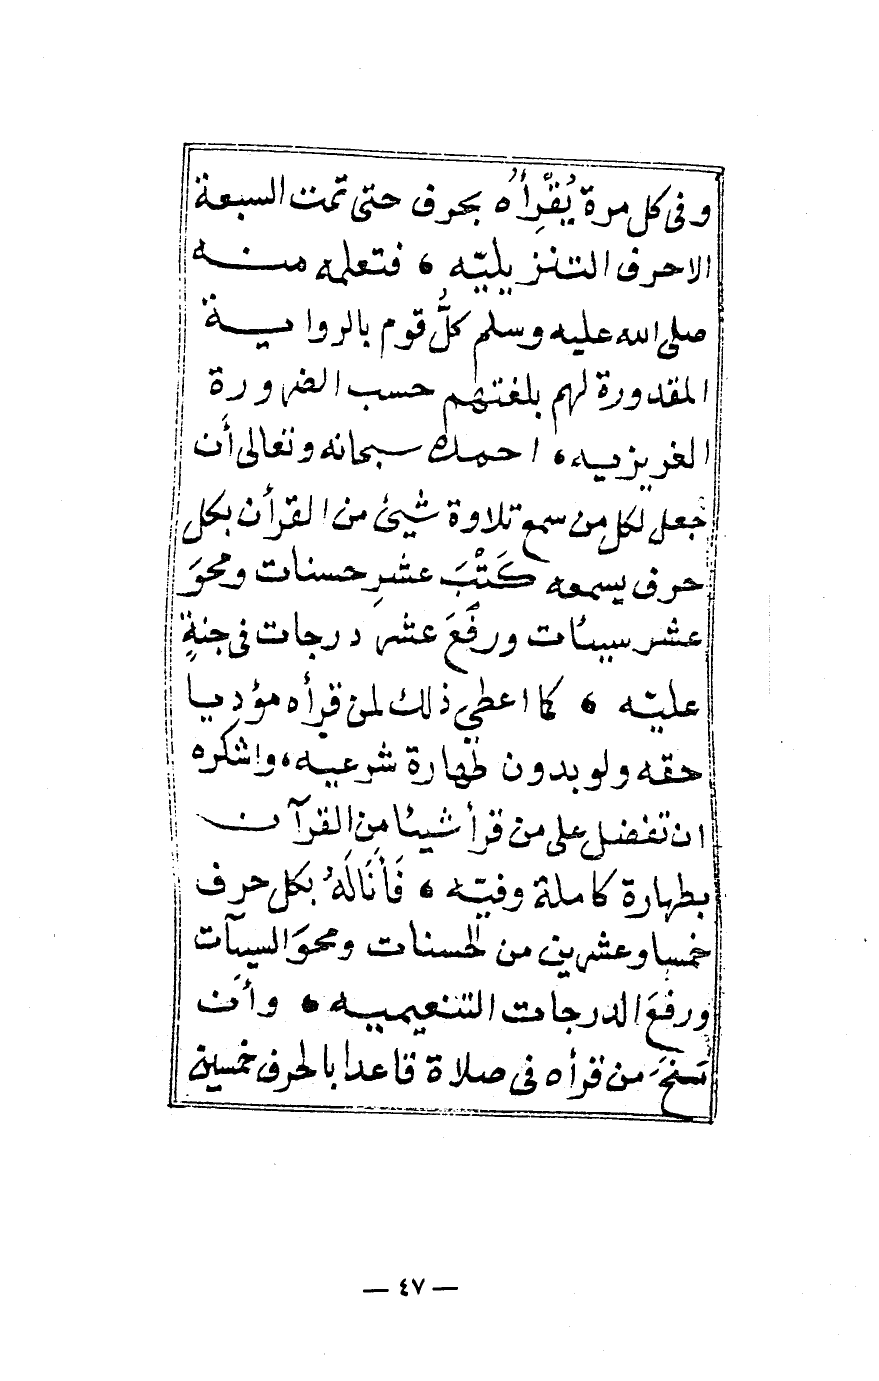 وفى كل مرة يُقْرِأُه بحرف حتى تمت السبعة
الاحرف التنزيليّه ، فتعلمه منه
صلى الله عليه وسلم كلُّ قوم بالرواية
المقدورة لهم بلغتهم حسب الضرورة
الغريزيه ، احمدك سبحانه وتعالى أن
جعل لكل من سمع تلاوة شيئ من القرأن بكل
حرف يسمعه كَتْبَ عشرِ حسنات ومحوَ
عشر سيئات ورفْعَ عشر درجات فى جنةٍ
عليّه ، كما اعطي ذلك لمن قرأه مؤديا
حقه ولو بدون طهارة شرعيه ، واشكره
ان تفضل على من قرأ شيئا مِن القرآن
بطهارة كاملة وفيّه ، فَأَنَالَهُ بكل حرف
خمسا وعشرين من الحسنات ومحوَ السيآت
ورفْعَ الدرجات التنعيميه ، وأن
مَنَحَ من قرأه فى صلاة قاعدا بالحرف خمسين
— ٤٧ —